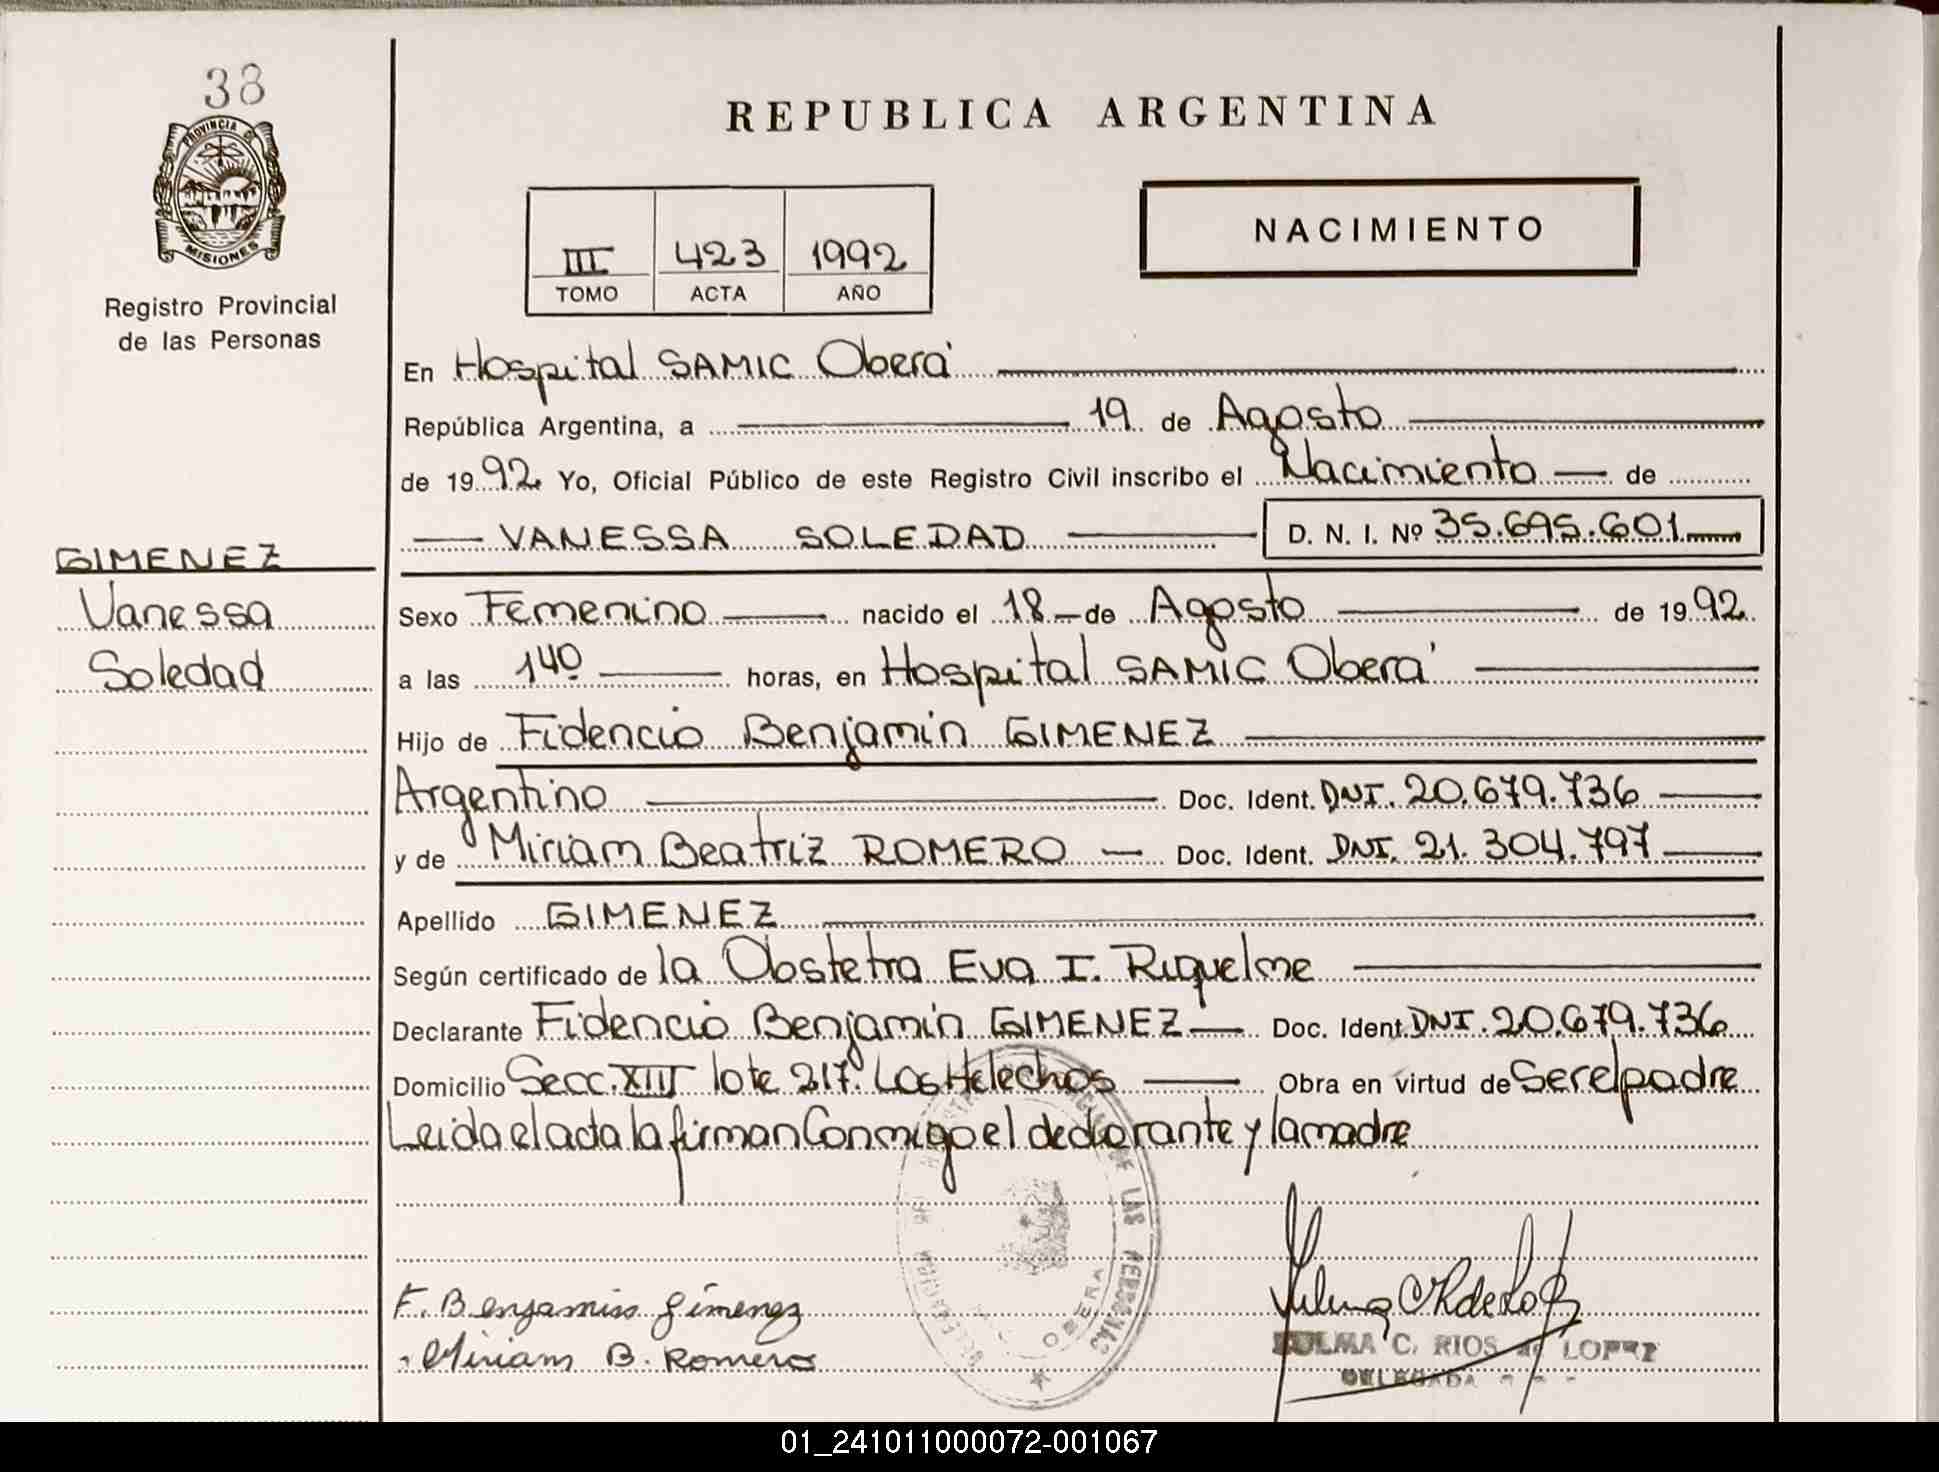 38
PROVINCIA DE
MISIONES
Registro Provincial
de las Personas
REPUBLICA ARGENTINA
III 423 1992
TOMO ACTA AÑO
NACIMIENTO
En Hospital SAMIC Oberá
República Argentina, a 19 de Agosto
de 1992 Yo, Oficial Público de este Registro Civil inscribo el Nacimiento de
VANESSA SOLEDAD D. N. I. Nº 35.695.601
GIMENEZ
Vanessa
Soledad
Sexo Femenino nacido el 18 de Agosto de 1992
a las 14º horas, en Hospital SAMIC Oberá
Hijo de Fidencio Benjamin GIMENEZ
Argentino Doc. Ident. DNI. 20.679.736
y de Miriam Beatriz ROMERO Doc. Ident. DNI. 21.304.797
Apellido GIMENEZ
Según certificado de la Obstetra Eva I. Riquelme
Declarante Fidencio Benjamin GIMENEZ Doc. Ident. DNI. 20.679.736
Domicilio Secc. XIII lote 217. Los Helechos Obra en virtud de Ser el padre
Leida el acta la firman Conmigo el declarante y la madre
DE LAS PERSONAS
OBERA
F. Benjamin Gimenez
Miriam B. Romero
ZULMA C. RIOS de LOPEZ
DELEGADA
01_241011000072-001067